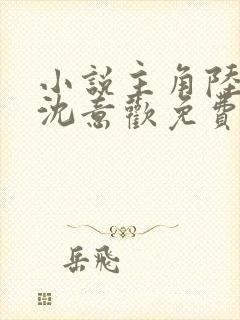 小説主角陸
沈意歡免費
岳飛